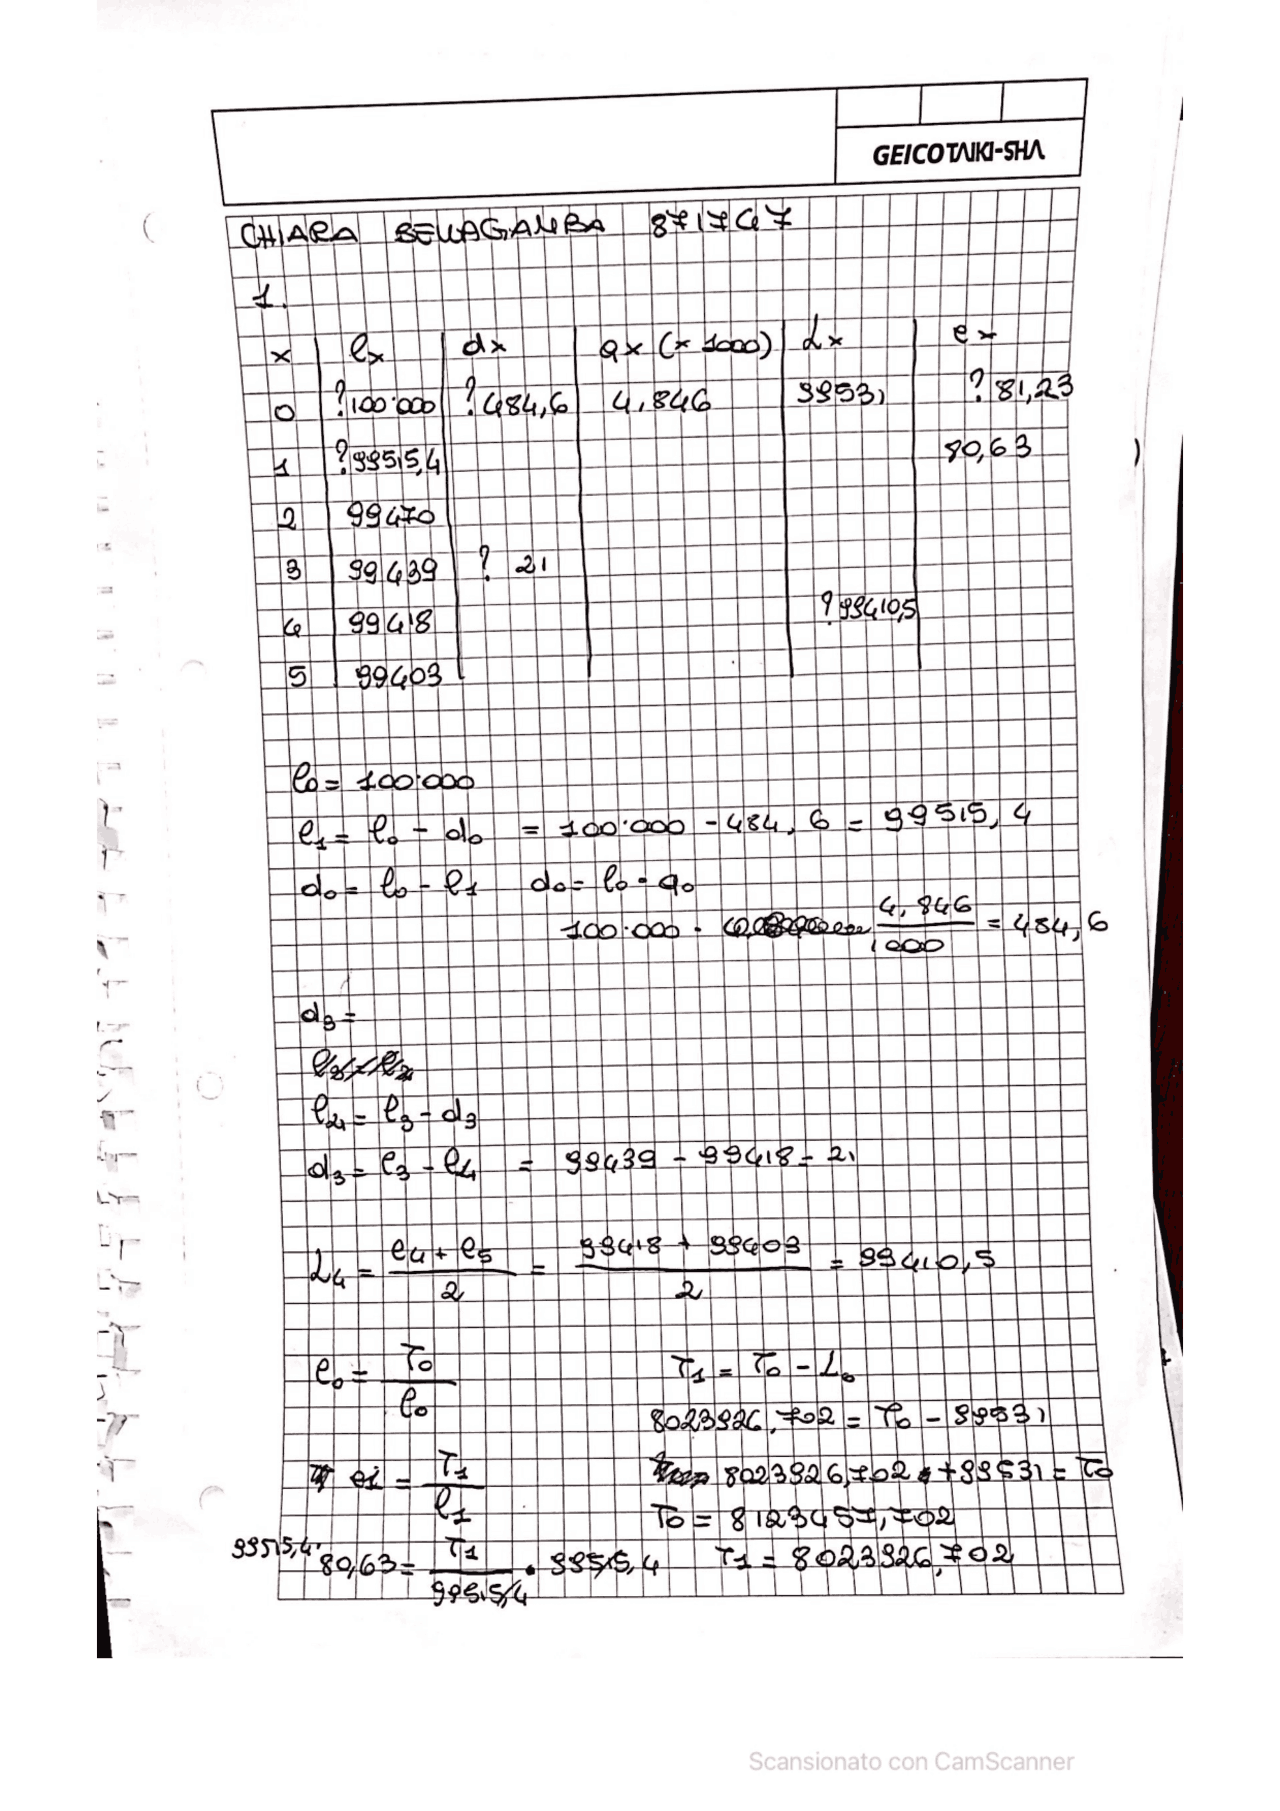 GEICOTAIKI-SHA
CHIARA BELLAGAMBA 871747
1.
x lx dx qx (x 1000) Lx ex
0 ?100'000 ?484,6 4.846 99531 ? 81,23
1 ?99515,4 80,63
2 99470
3 99439 ? 21
4 99418 ?99410,5
5 99403
l0 = 100'000
l1 = l0 - d0 = 100'000 - 484,6 = 99515,4
d0 = l0 - l1 d0 = l0 · q0
100'000 · 4.846/1000 = 484,6
d3 =
l4 = l3 - d3
d3 = l3 - l4 = 99439 - 99418 = 21
L4 = (l4 + l5)/2 = (99418 + 99403)/2 = 99410,5
e0 = T0/l0 T1 = T0 - L0
8023926,702 = T0 - 99531
e1 = T1/l1 8023926,702 + 99531 = T0
T0 = 8123457,702
99515,4 · 80,63 = T1/99515,4 · 99515,4 T1 = 8023926,702
Scansionato con CamScanner